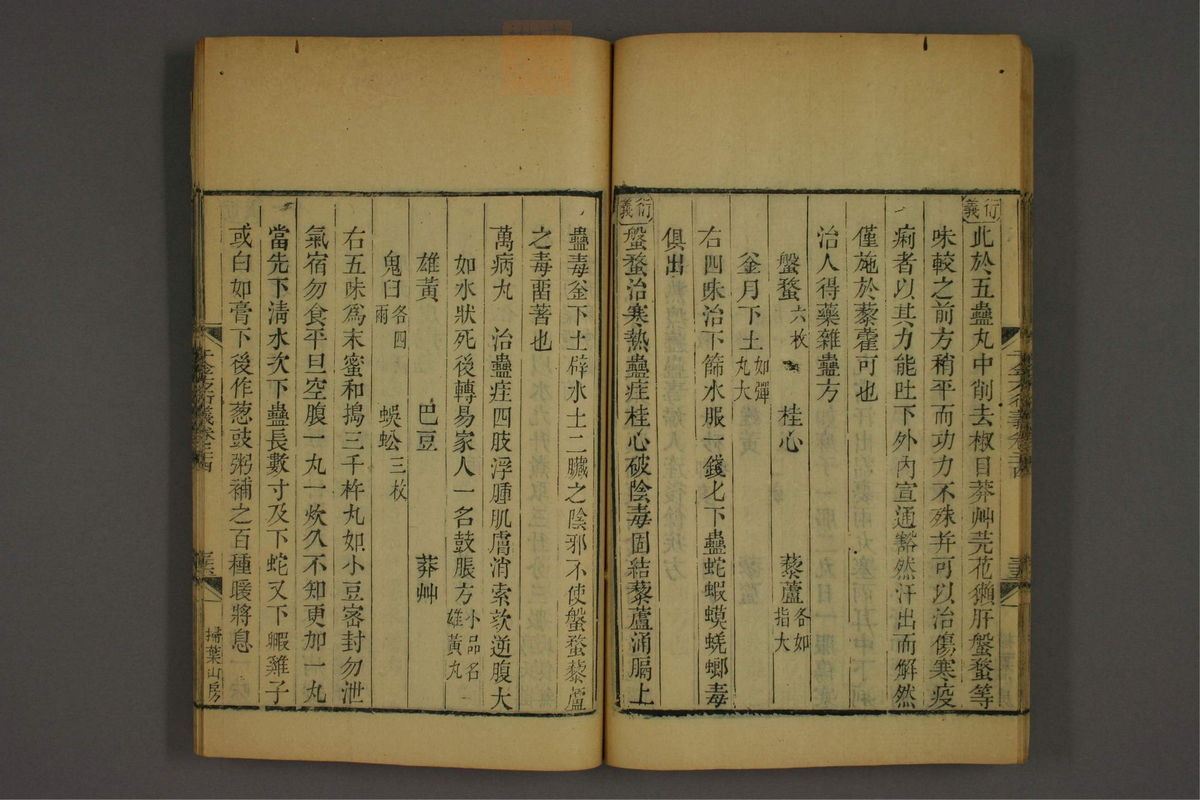 衍義
此於五蠱丸中削去椒目莽艸芫花獺肝盤蝥等
味較之前方稍平而功力不殊并可以治傷寒疫
痢者以其力能吐下外內宣通豁然汗出而解然
僅施於藜藿可也
治人得藥雜蠱方
盤蝥六枚 桂心 藜蘆各如指大
釜月下土如彈丸大
右四味治下篩水服一錢匕下蠱蛇蝦蟆蜣螂毒
俱出
衍義
盤蝥治寒熱蠱疰桂心破陰毒固結藜蘆涌膈上
蠱毒釜下土辟水土二臟之陰邪不使盤蝥藜蘆
之毒畱著也
萬病丸 治蠱疰四肢浮腫肌膚消索欬逆腹大
如水狀死後轉易家人一名鼓脹方小品名雄黃丸
雄黃 巴豆 莽艸
鬼臼各四兩 蜈蚣三枚
右五味爲末蜜和搗三千杵丸如小豆密封勿泄
氣宿勿食平旦空腹一丸一炊久不知更加一丸
當先下淸水次下蠱長數寸及下蛇又下鰕雞子
或白如膏下後作葱豉粥補之百種暖將息
掃葉山房